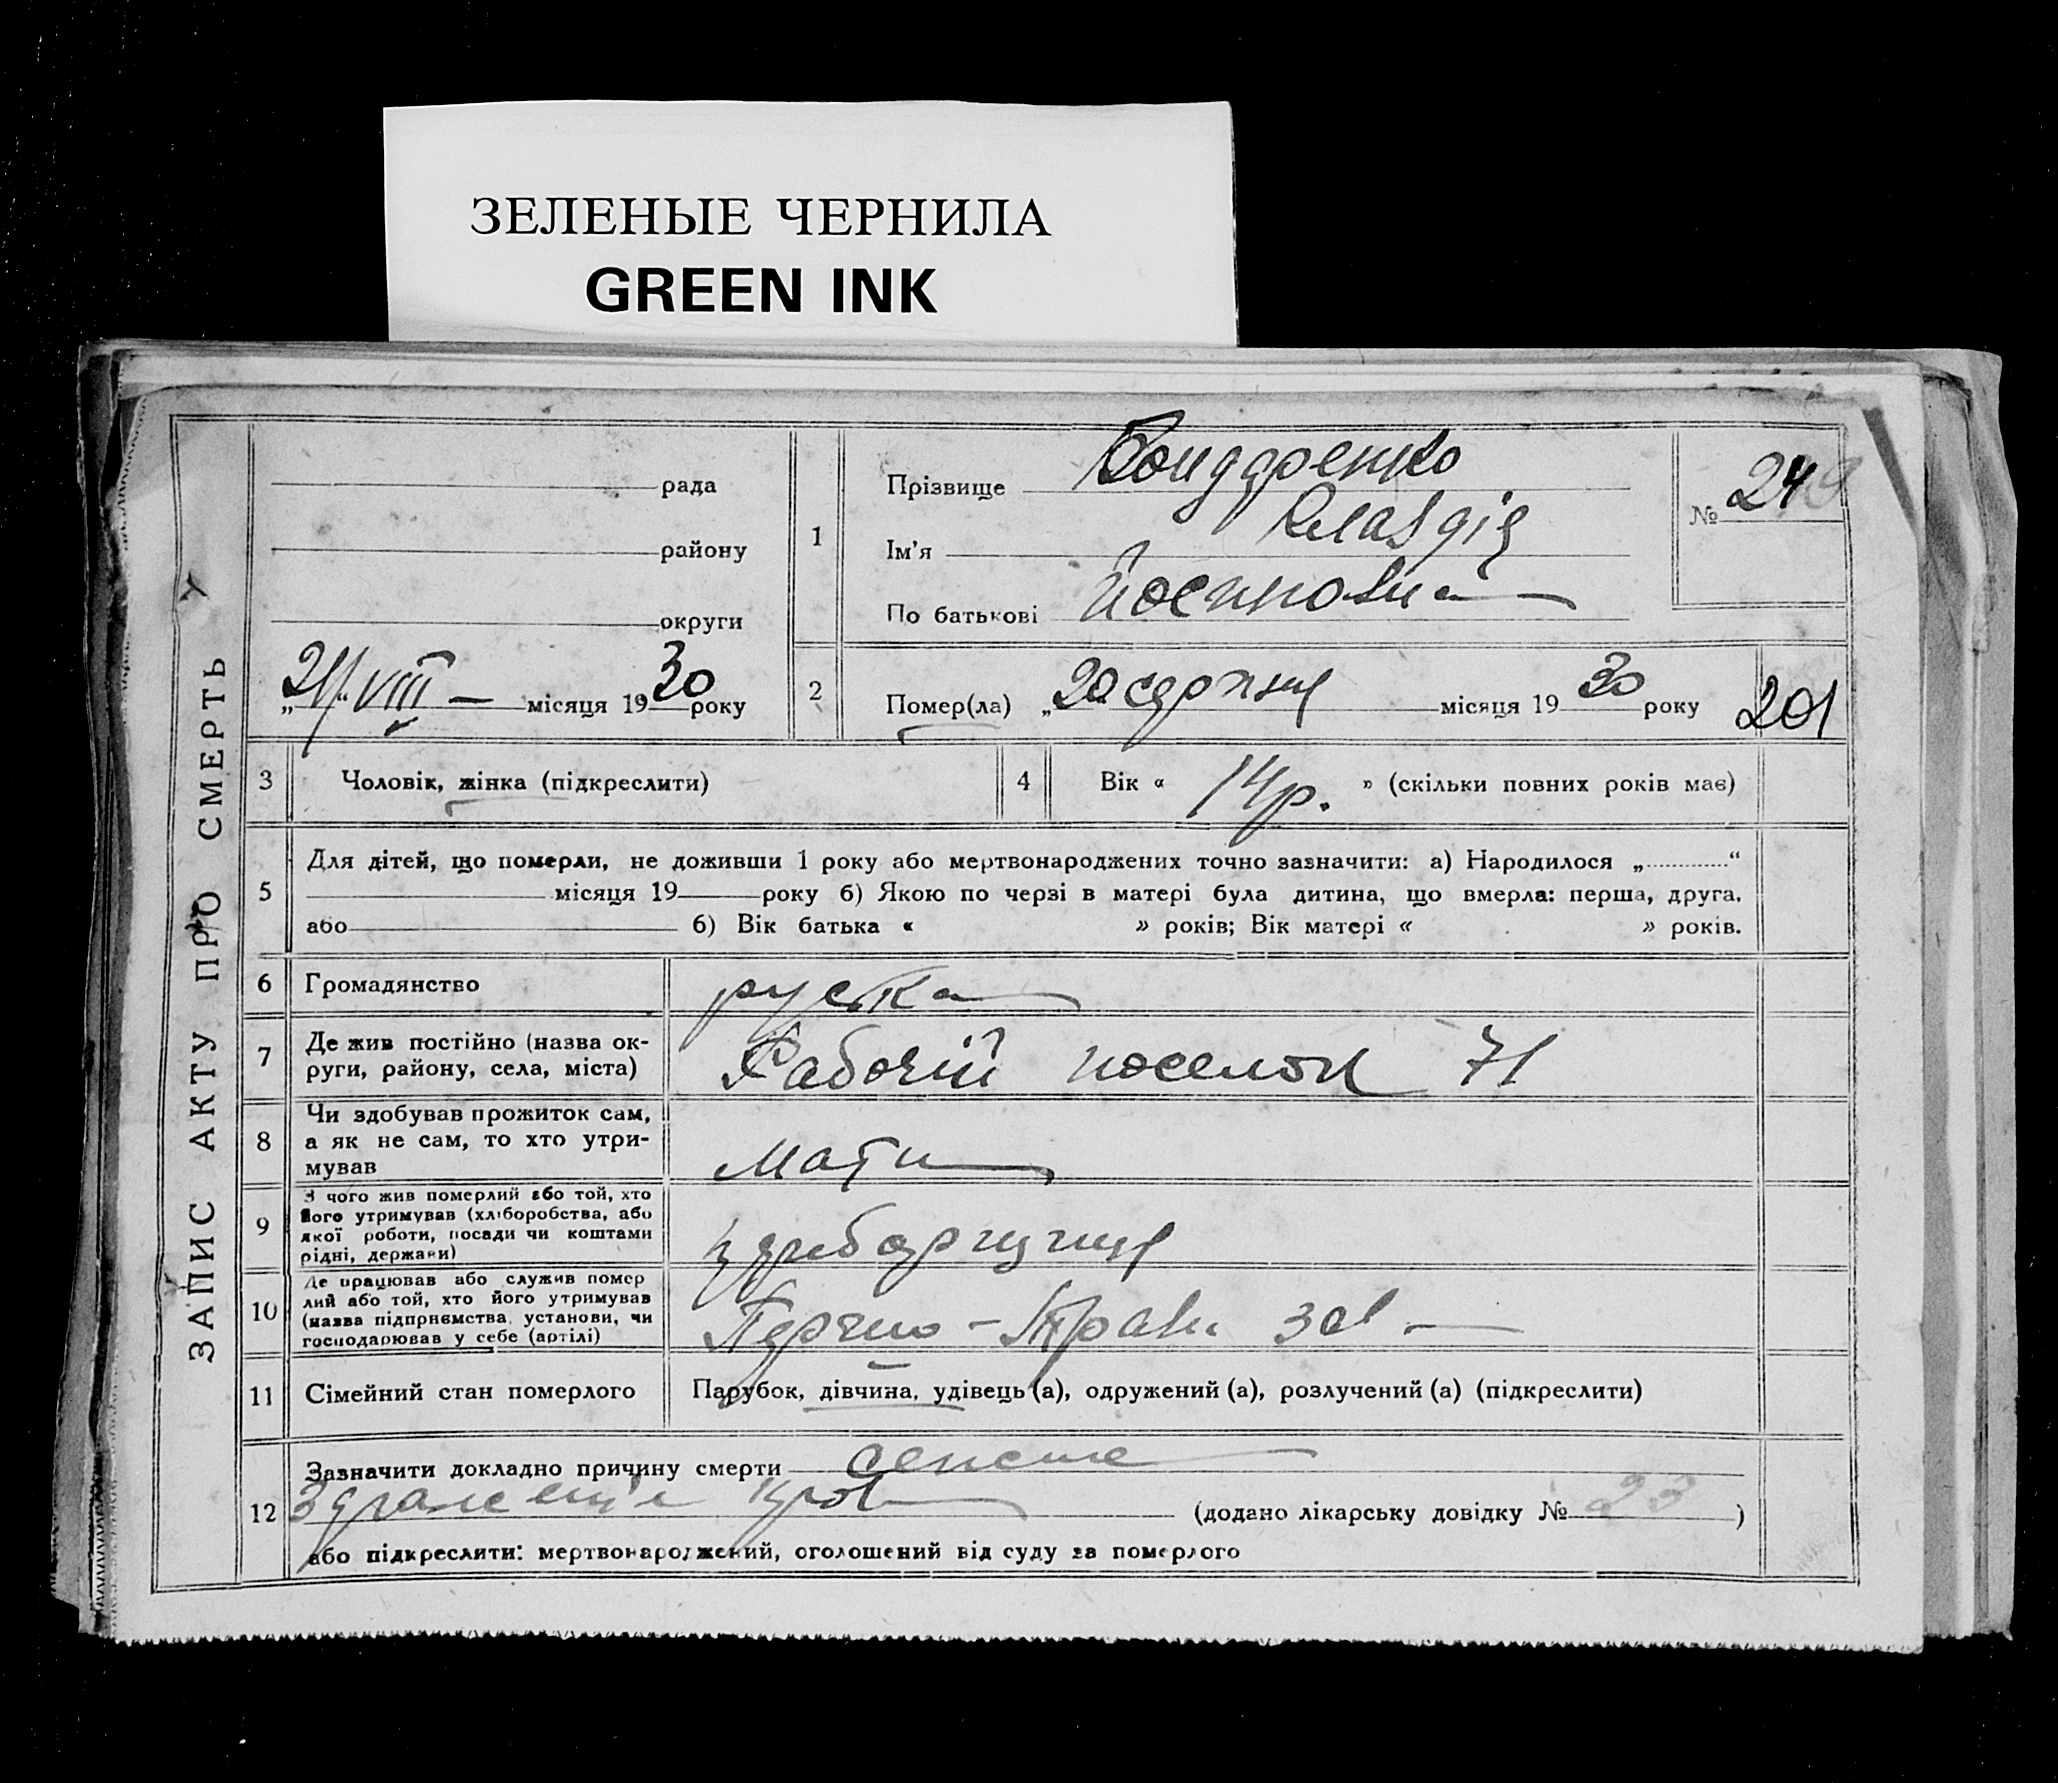 ЗЕЛЕНЫЕ ЧЕРНИЛА
GREEN INK
ЗАПИС АКТУ ПРО СМЕРТЬ
рада
району
округи
„21“ VIII — місяця 1930 року
1
Прізвище Бондаренко
Ім'я Клавдія
По батькові Йосиповна
№ 24
2
Помер(ла) „20 серпня місяця 1930 року
201
3 Чоловік, жінка (підкреслити)
4 Вік « 14 р. » (скільки повних років має)
5
Для дітей, що померли, не доживши 1 року або мертвонароджених точно зазначити: а) Народилося „ “
місяця 19 року б) Якою по черзі в матері була дитина, що вмерла: перша, друга,
або б) Вік батька « » років; Вік матері « » років.
6 Громадянство руска
7 Де жив постійно (назва ок-
руги, району, села, міста) Рабочій поселок 71
8 Чи здобував прожиток сам,
а як не сам, то хто утри-
мував Мати
9 З чого жив померлий або той, хто
його утримував (хліборобства, або
якої роботи, посади чи коштами
рідні, держави)
10 Де працював або служив помер
лий або той, хто його утримував
(назва підприємства, установи, чи
господарював у себе (артілі) зав
11 Сімейний стан померлого Парубок, дівчина, удівець (а), одружений (а), розлучений (а) (підкреслити)
12 Зазначити докладно причину смерти сепсис
кров (додано лікарську довідку № 23 )
або підкреслити: мертвонароджений, оголошений від суду за померлого